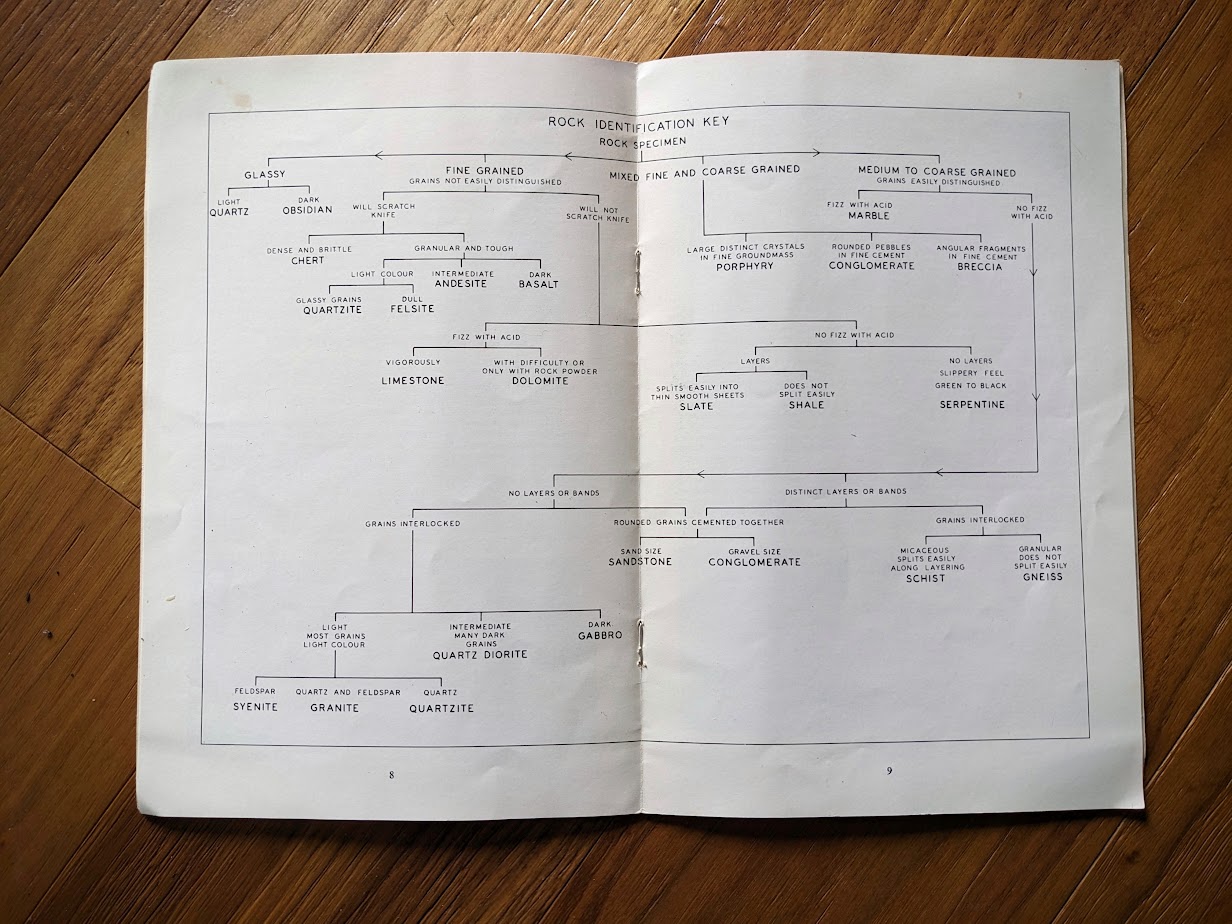 ROCK IDENTIFICATION KEY
ROCK SPECIMEN
GLASSY
LIGHT
QUARTZ
DARK
OBSIDIAN
FINE GRAINED
GRAINS NOT EASILY DISTINGUISHED
WILL SCRATCH
KNIFE
DENSE AND BRITTLE
CHERT
GRANULAR AND TOUGH
LIGHT COLOUR
GLASSY GRAINS
QUARTZITE
DULL
FELSITE
INTERMEDIATE
ANDESITE
DARK
BASALT
WILL NOT
SCRATCH KNIFE
FIZZ WITH ACID
VIGOROUSLY
LIMESTONE
WITH DIFFICULTY OR
ONLY WITH ROCK POWDER
DOLOMITE
NO FIZZ WITH ACID
LAYERS
SPLITS EASILY INTO
THIN SMOOTH SHEETS
SLATE
DOES NOT
SPLIT EASILY
SHALE
NO LAYERS
SLIPPERY FEEL
GREEN TO BLACK
SERPENTINE
MIXED FINE AND COARSE GRAINED
LARGE DISTINCT CRYSTALS
IN FINE GROUNDMASS
PORPHYRY
ROUNDED PEBBLES
IN FINE CEMENT
CONGLOMERATE
ANGULAR FRAGMENTS
IN FINE CEMENT
BRECCIA
MEDIUM TO COARSE GRAINED
GRAINS EASILY DISTINGUISHED
FIZZ WITH ACID
MARBLE
NO FIZZ
WITH ACID
NO LAYERS OR BANDS
GRAINS INTERLOCKED
LIGHT
MOST GRAINS
LIGHT COLOUR
FELDSPAR
SYENITE
QUARTZ AND FELDSPAR
GRANITE
QUARTZ
QUARTZITE
INTERMEDIATE
MANY DARK
GRAINS
QUARTZ DIORITE
DARK
GABBRO
ROUNDED GRAINS CEMENTED TOGETHER
SAND SIZE
SANDSTONE
GRAVEL SIZE
CONGLOMERATE
DISTINCT LAYERS OR BANDS
GRAINS INTERLOCKED
MICACEOUS
SPLITS EASILY
ALONG LAYERING
SCHIST
GRANULAR
DOES NOT
SPLIT EASILY
GNEISS
8
9